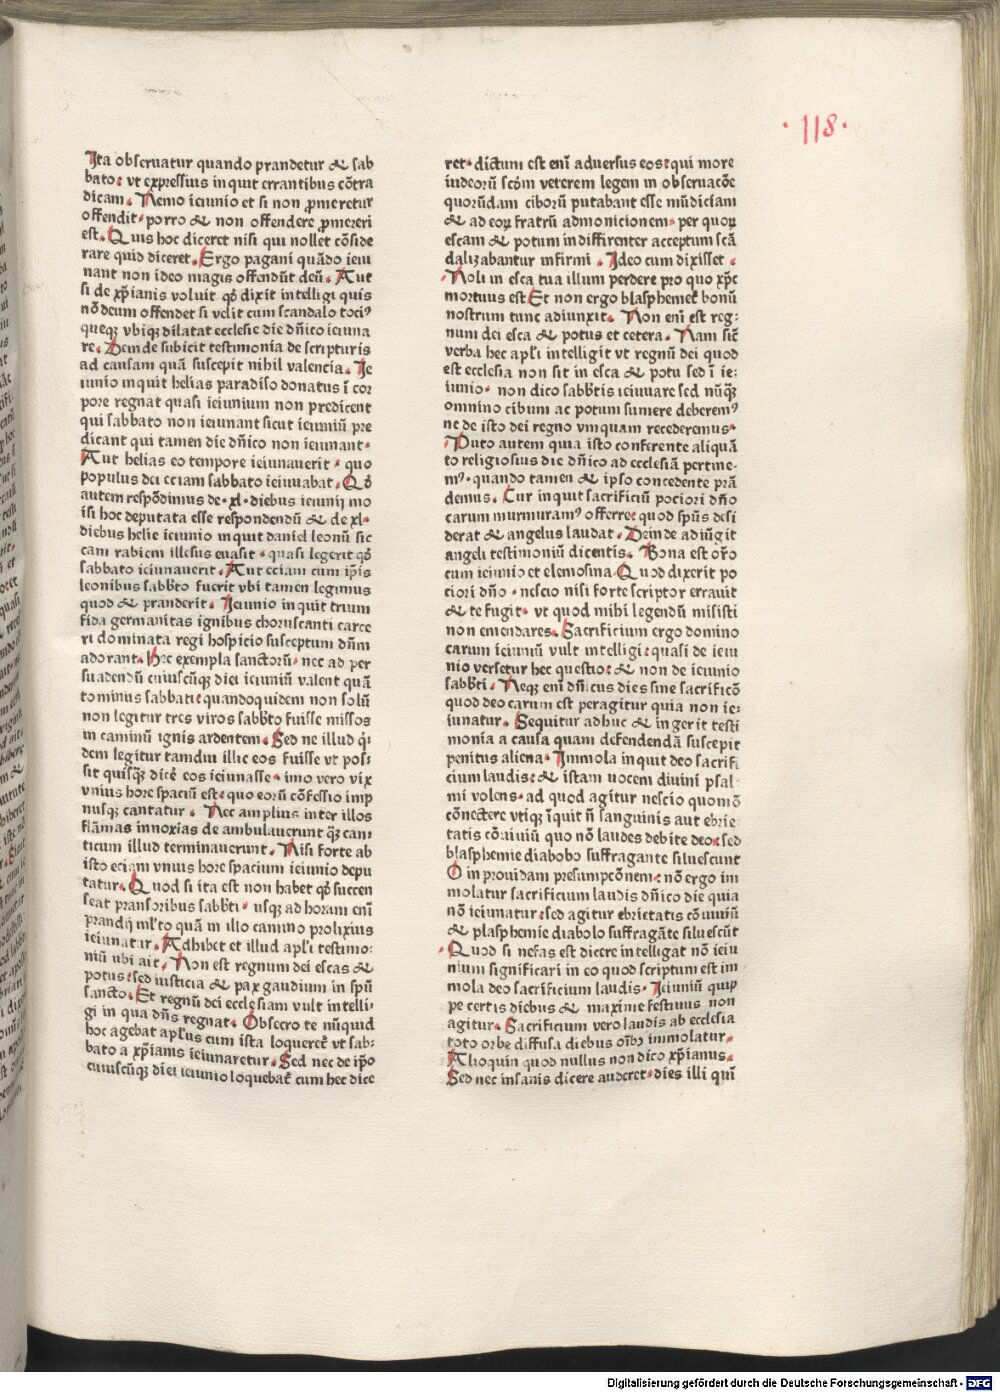 ·118·
Ita obseruatur quando prandetur & sab
bato: vt expressius inquit errantibus cōtra
dicam. Nemo ieiunio et si non ꝓmeretur
offendit· porro & non offendere ꝓmereri
est. Quis hoc diceret nisi qui nollet cōside
rare quid diceret. Ergo pagani quādo ieiu
nant non ideo magis offendūt deū. Aut
si de xp̄ianis voluit qđ dixit intelligi quis
nō deum offendet si velit cum scandalo toci⁹
queqꝫ vbiqꝫ dilatat ecclesie die dn̄ico ieiuna
re. Deinde subicit testimonia de scripturis
ad causam quā suscepit nihil valencia. Ie
iunio inquit helias paradiso donatus ī cor
pore regnat quasi ieiunium non predicent
qui sabbato non ieiunant sicut ieiuniū pre
dicant qui tamen die dn̄ico non ieiunant·
Aut helias eo tempore ieiunauerit · quo
populus dei eciam sabbato ieiuuabat. Qđ
autem respōdimus de·xl·diebus ieiunij mo
isi hoc deputata esse respondendū & de xl·
diebus helie ieiunio inquit daniel leonū sic
cam rabiem illesus euasit · quasi legerit qđ
sabbato ieiunauerit. Aut eciam cum ip̄is
leonibus sabb̄to fuerit vbi tamen legimus
quod & pranderit. Ieiunio inquit trium
fida germanitas ignibus choruscanti carce
ri dominata regi hospicio susceptum dn̄m
adorant· Hec exempla sanctorū· nec ad per
suadendū cuiuscūqꝫ diei ieiuniū valent quā
tominus sabbati: quandoquidem non solū
non legitur tres viros sabb̄to fuisse missos
in caminū ignis ardentem. Sed ne illud qi
dem legitur tamdiu illic eos fuisse vt pos/
sit quisqꝫ dicē eos ieiunasse· imo vero vix
vnius hore spaciū est: quo eorū cōfessio imp
nusqꝫ cantatur. Nec amplius inter illos
flāmas innoxias de ambulauerunt qꝫ can/
ticum illud terminauerunt. Nisi forte ab
isto eciam vnius hore spacium ieiunio depu
tatur. Quod si ita est non habet qđ succen
seat pransoribus sabb̄ti · usqꝫ ad horam enī
prandij ml̄to quā in illo camino prolixius
ieiunatur. Adhibet et illud apl̄i testimo:
niū ubi ait. Non est regnum dei escas &
potus: sed iusticia & pax gaudium in spū
sancto. Et regnū dei ecclesiam vult intelli/
gi in qua dn̄s regnat. Obsecro te nūquid
hoc agebat apl̄us cum ista loqueret᷑ vt sab:
bato a xp̄ianis ieiunaretur. Sed nec de ip̄o
cuiuscūqꝫ diei ieiunio loquebat᷑ cum hec dice
ret· dictum est enī aduersus eos: qui more
iudeorū scd̄m veterem legem in obseruacōe
quorūdam ciborū putabant esse mūdiciam
& ad eoꝝ fratrū admonicionem· per quoꝝ
escam & potum indiffirenter acceptum scā
dalizabantur infirmi . Ideo cum dixisset .
Noli in esca tua illum perdere pro quo xp̄c
mortuus est Et non ergo blasphemet᷑ bonū
nostrum tunc adiunxit. Non enī est reg/
num dei esca & potus et cetera. Nam sic̄
verba hec apl̄i intelligit vt regnū dei quod
est ecclesia non sit in esca & potu sed ī ie/
iunio· non dico sabb̄tis ieiuuare sed nūqꝫ
omnino cibum ac potum sumere deberem⁹
ne de isto dei regno vmquam recederemus·
Puto autem quia isto conferente aliquā
to religiosius die dn̄ico ad ecclesiā pertine/
m⁹· quando tamen & ipso concedente prā
demus. Cur inquit sacrificiū pociori dn̄o
carum murmuram⁹ offerre: quod spūs desi
derat & angelus laudat. Deinde adiūgit
angeli testimoniū dicentis. Bona est or̄o
cum ieiunio et elemosina· Quod dixerit po
ciori dn̄o · nescio nisi forte scriptor errauit
& te fugit· vt quod mihi legendū misisti
non emendares. Sacrificium ergo domino
carum ieiuniū vult intelligi: quasi de ieiu
nio versetur hec questio: & non de ieiunio
sabb̄ti. Neqꝫ enī dn̄icus dies sine sacrificō
quod deo carum est peragitur quia non ie:
iunatur. Sequitur adhuc & ingerit testi
monia a causa quam defendendā suscepit
penitus aliena. Immola inquit deo sacrifi
cium laudis: & istam uocem diuini psal/
mi volens· ad quod agitur nescio quomō
cōnectere vtiqꝫ īquit n̄ sanguinis aut ebrie/
tatis cōuiuiū quo nō laudes debite deo: sed
blasphemie diabobo suffragante siluescunt
O in prouidam presumpcōnem: nō ergo im
molatur sacrificium laudis dn̄ico die quia
nō ieiunatur: sed agitur ebrietatis cōuiuiū
& plasphemie diabolo suffragāte siluescūt
Quod si nefas est dicere intelligat nō ieiu
nium significari in eo quod scriptum est im
mola deo sacrificium laudis· Ieiuniū quip
pe certis diebus & maxime festiuis non
agitur. Sacrificium vero laudis ab ecclesia
toto orbe diffusa diebus oībꝫ immolatur.
Alioquin quod nullus non dico xp̄ianus.
Sed nec insanis dicere auderet· dies illi quī
Digitalisierung gefördert durch die Deutsche Forschungsgemeinschaft - DFG